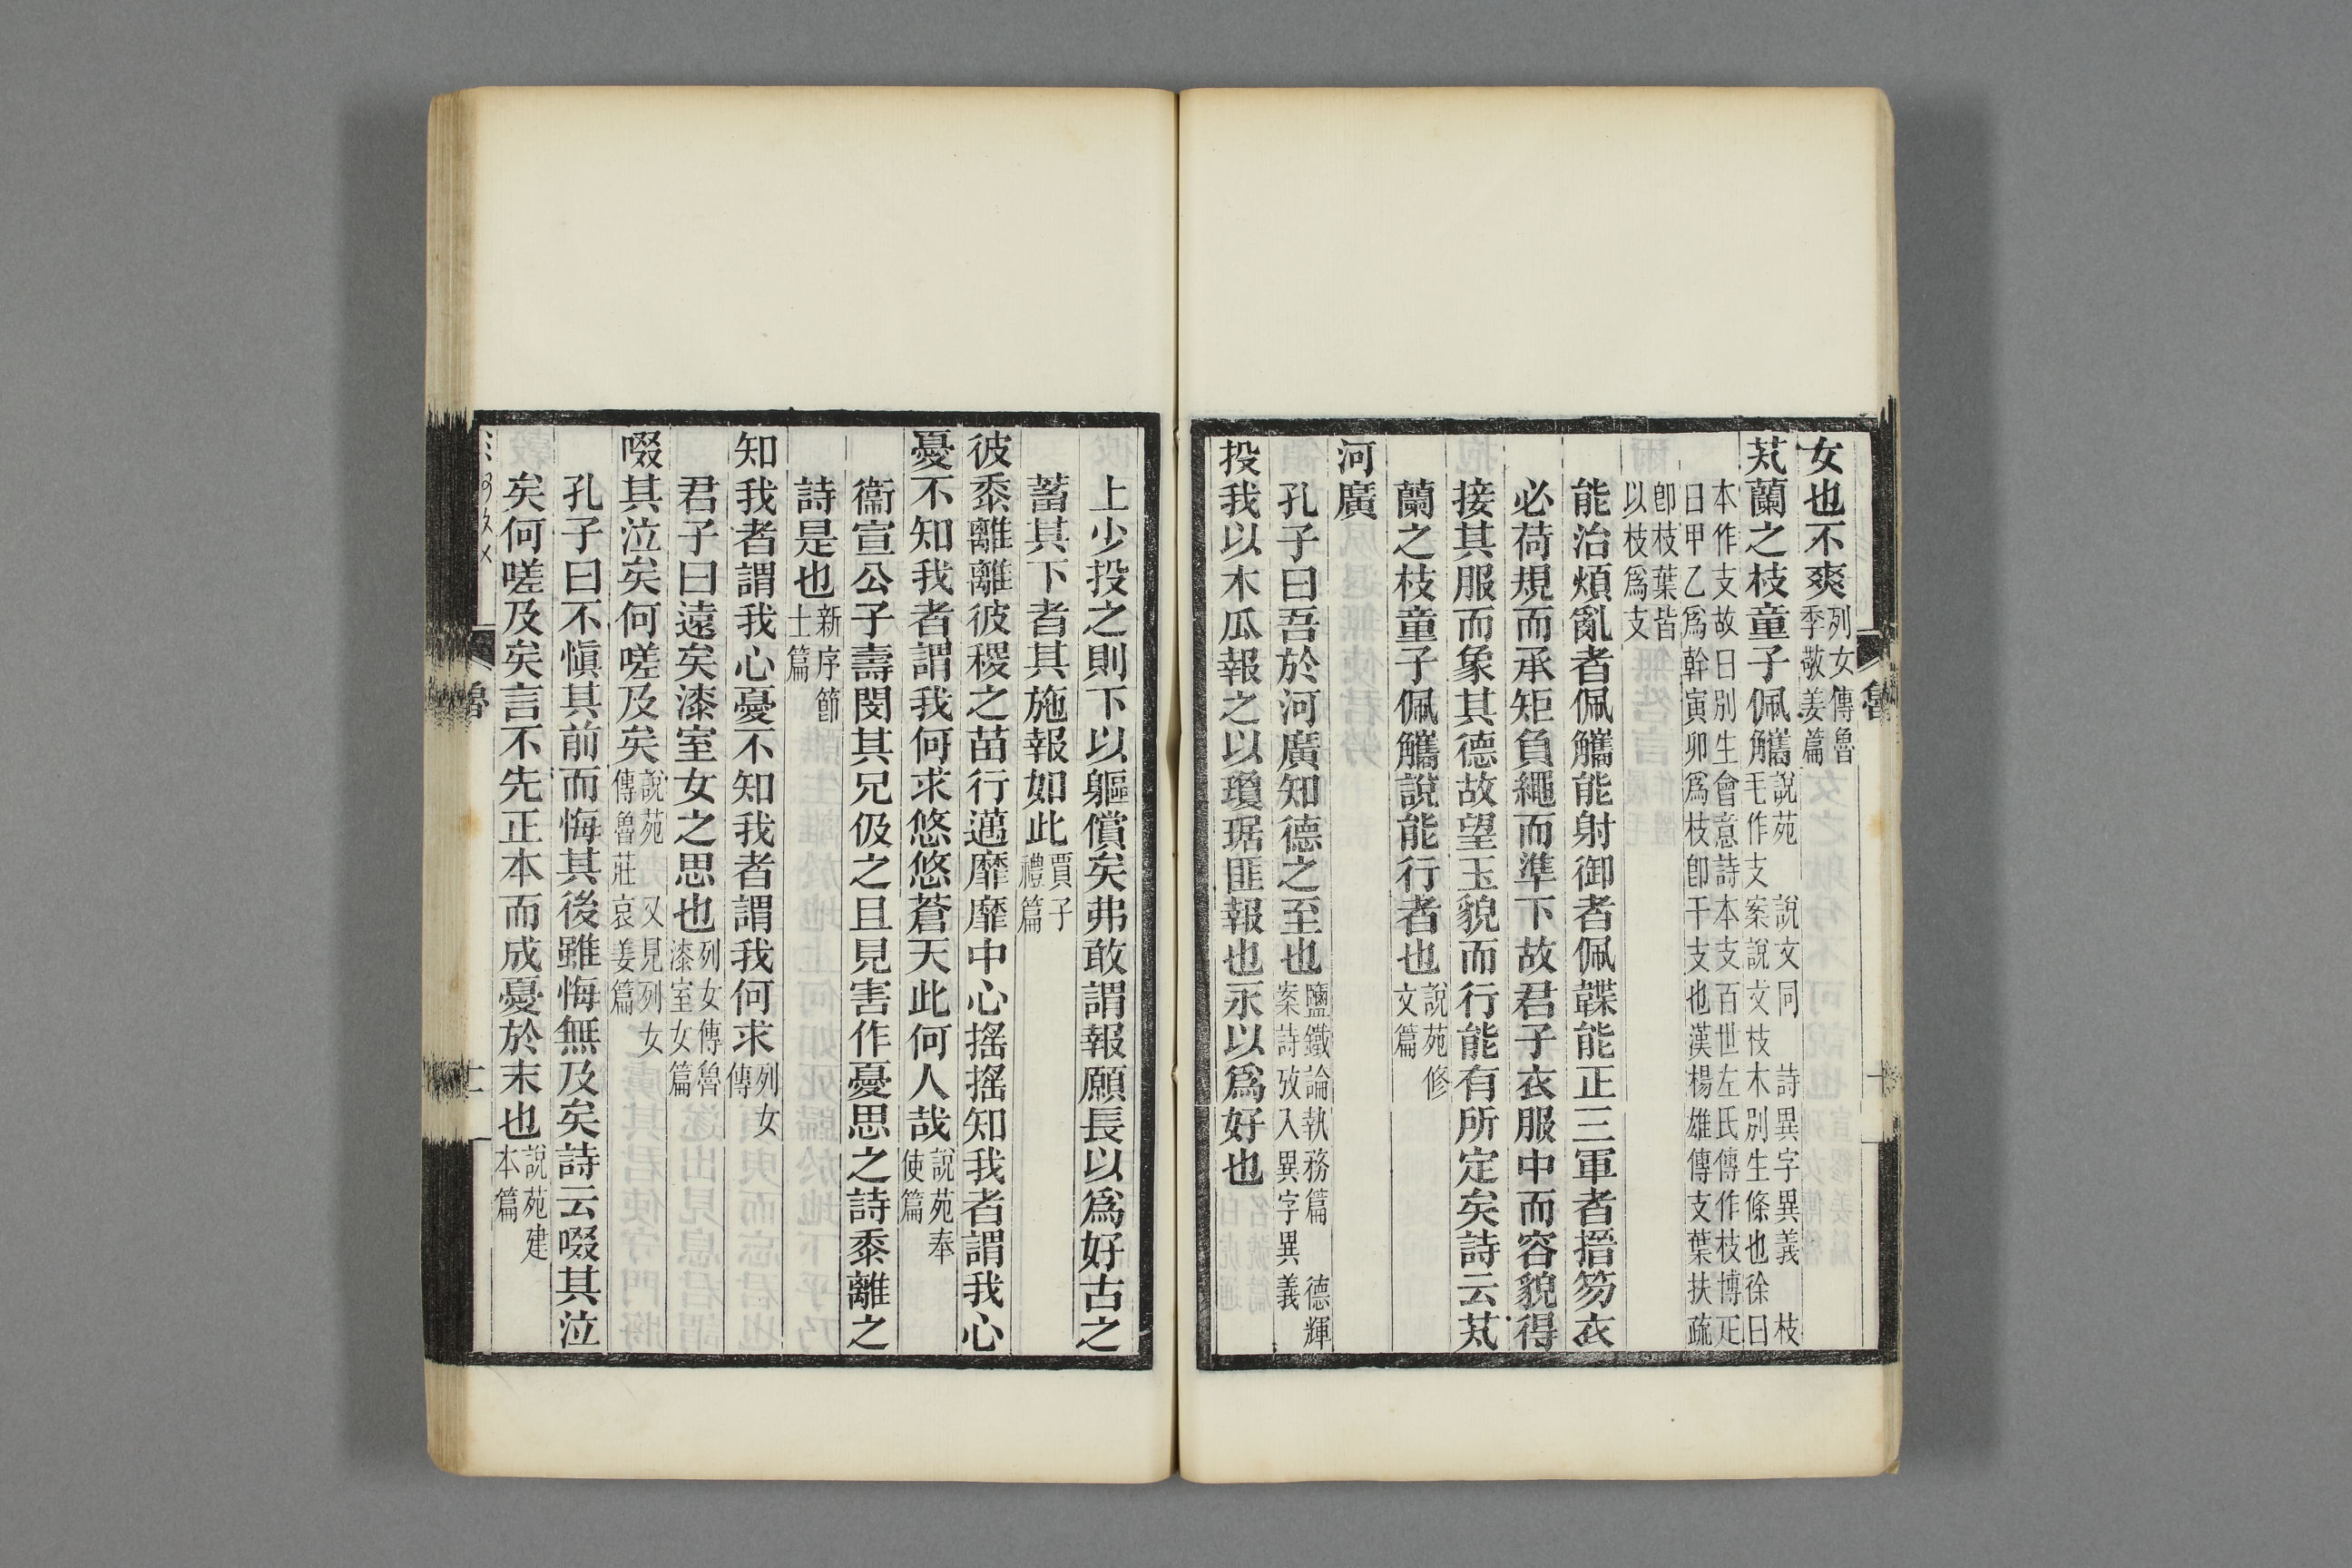 女也不爽列女傳魯季敬姜篇
芄蘭之枝童子佩觿說苑 說文同 詩異字異義 枝毛作支 案說文枝木別生條也徐曰
本作支故曰別生會意詩本支百世左氏傳作枝博疋曰甲乙爲幹寅卯爲枝卽干支也漢楊雄傳支葉扶疏
卽枝葉皆以枝爲支
能治煩亂者佩觿能射御者佩韘能正三軍者搢笏衣
必荷規而承矩負繩而準下故君子衣服中而容貌得
接其服而象其德故望玉貌而行能有所定矣詩云芄
蘭之枝童子佩觿說能行者也說苑修文篇
河廣
孔子曰吾於河廣知德之至也鹽鐵論執務篇 德輝案詩攷入異字異義
投我以木瓜報之以瓊琚匪報也永以爲好也
上少投之則下以軀償矣弗敢謂報願長以爲好古之
蓄其下者其施報如此賈子禮篇
彼黍離離彼稷之苗行邁靡靡中心搖搖知我者謂我心
憂不知我者謂我何求悠悠蒼天此何人哉說苑奉使篇
衞宣公子壽閔其兄伋之且見害作憂思之詩黍離之
詩是也新序節士篇
知我者謂我心憂不知我者謂我何求列女傳
君子曰遠矣漆室女之思也列女傳魯漆室女篇
啜其泣矣何嗟及矣說苑 又見列女傳魯莊哀姜篇
孔子曰不愼其前而悔其後雖悔無及矣詩云啜其泣
矣何嗟及矣言不先正本而成憂於末也說苑建本篇